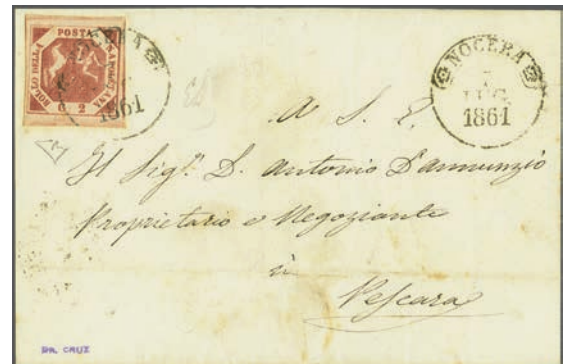 BOLLO DELLA
POSTA
NAPOLETANA
G. 2
NOCERA
1861
NOCERA
7
LUG.
1861
A S. E.
Il Sigr. D. Antonio D'Annunzio
Proprietario e Negoziante
à
Pescara
DR. CRUZ